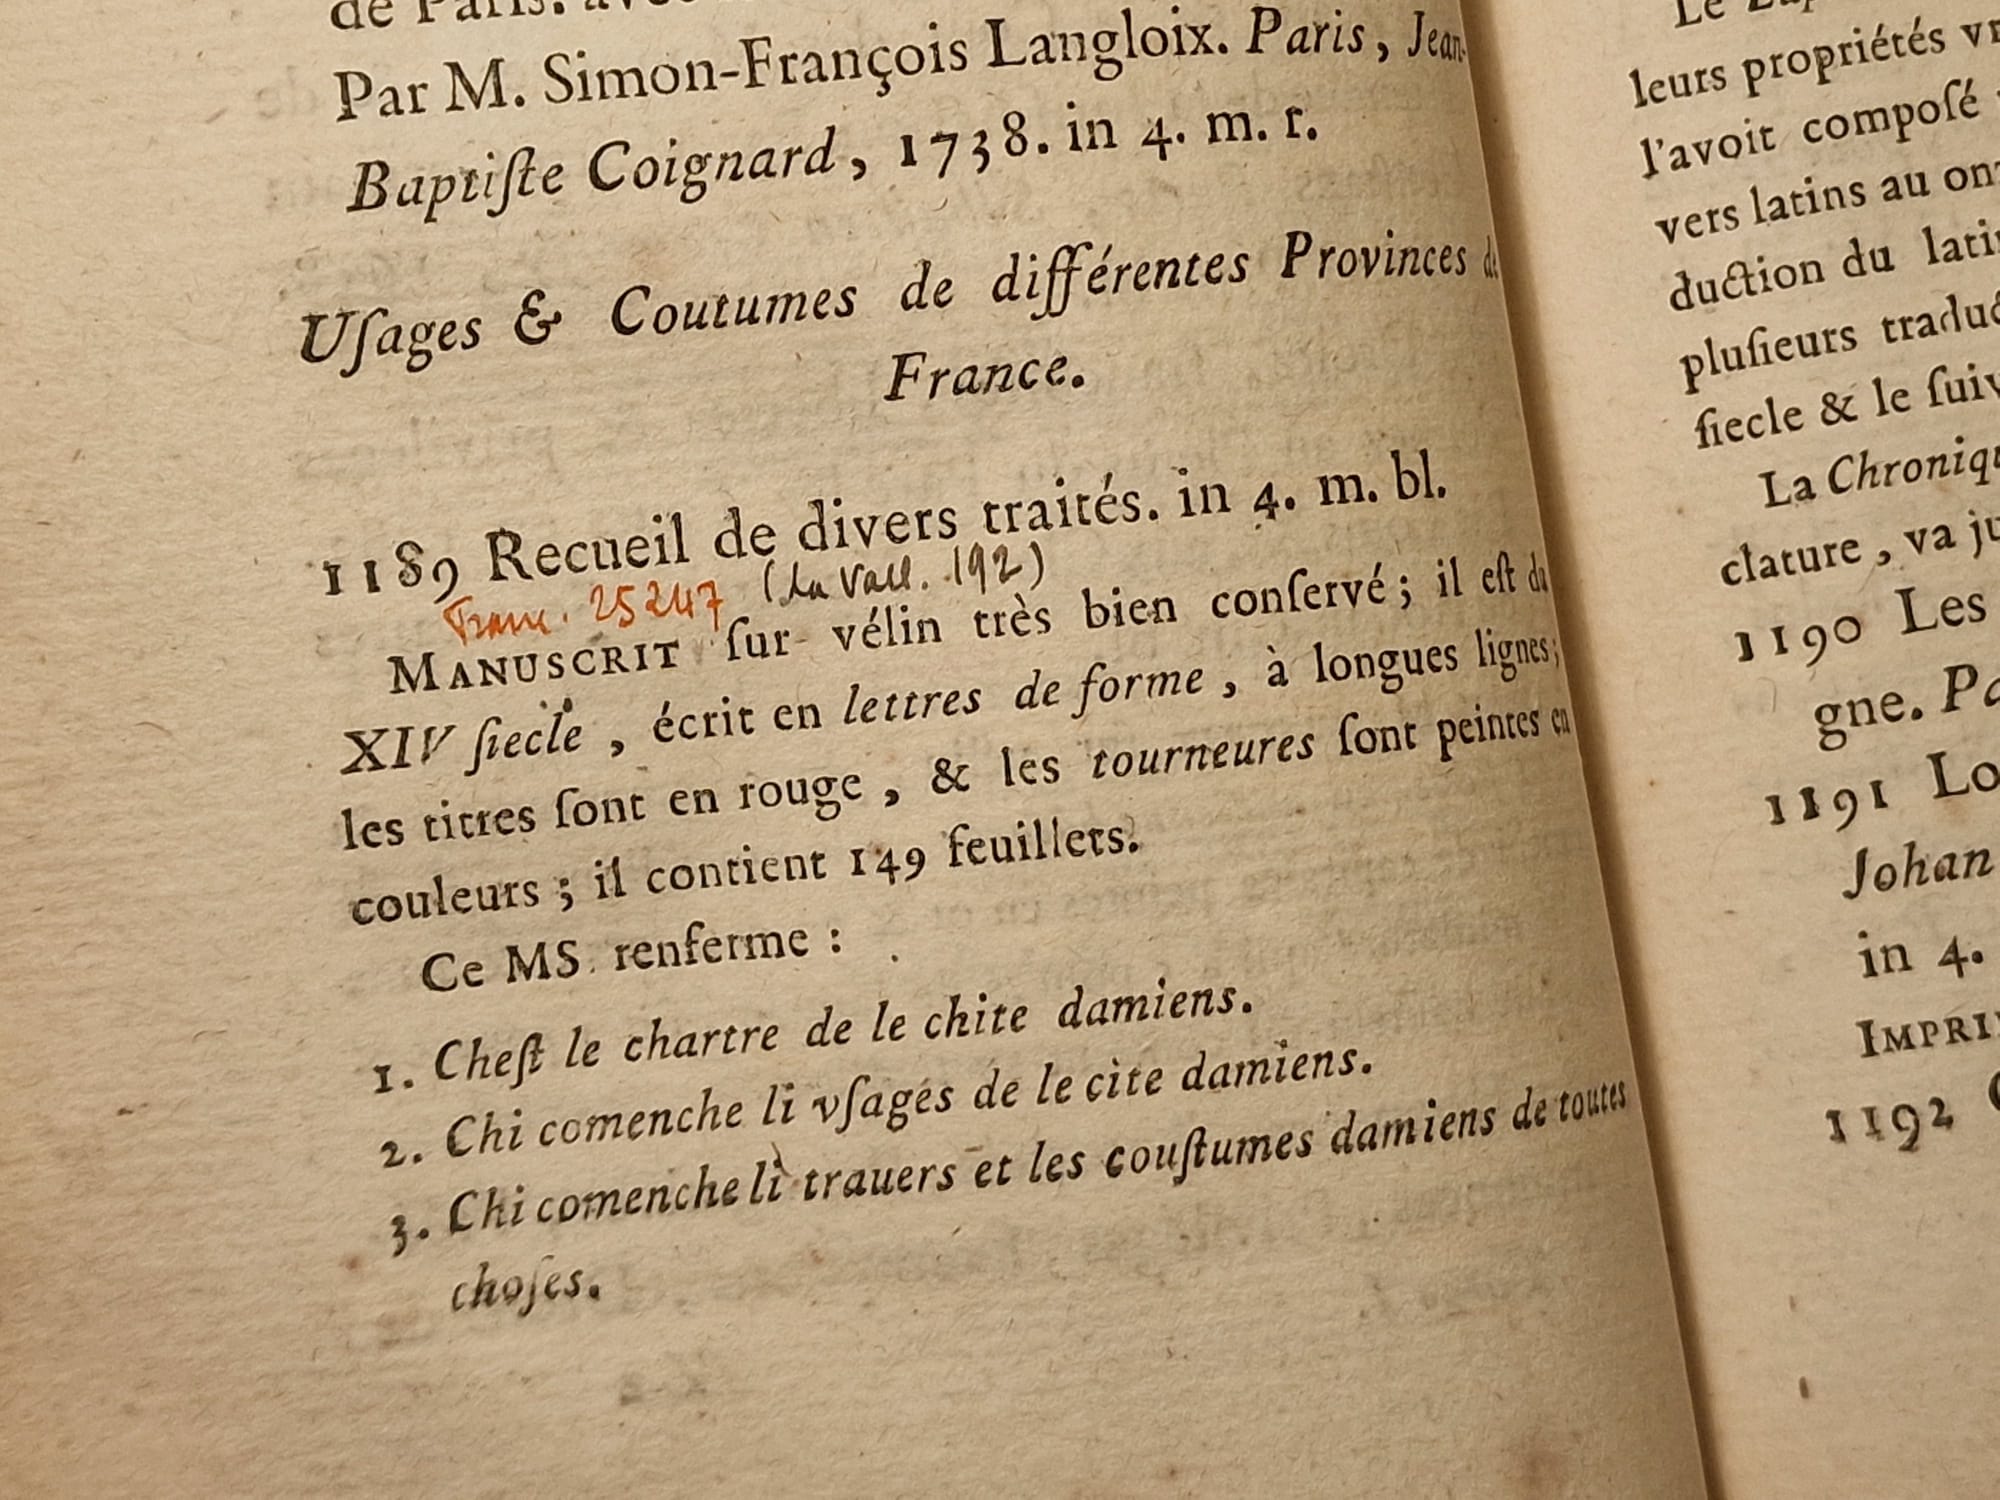 de Paris.
Par M. Simon-François Langloix. Paris, Jean-
Baptiſte Coignard, 1738. in 4. m. r.
Uſages & Coutumes de différentes Provinces de
France.
1189 Recueil de divers traités. in 4. m. bl.
Franc. 25247 (La Vall. 192)
MANUSCRIT ſur vélin très bien conſervé; il eſt du
XIV ſiecle, écrit en lettres de forme, à longues lignes;
les titres ſont en rouge, & les tourneures ſont peintes en
couleurs; il contient 149 feuillets.
Ce MS. renferme:
1. Cheſt le chartre de le chite damiens.
2. Chi comenche li vſages de le cite damiens.
3. Chi comenche li trauers et les couſtumes damiens de toutes
choſes.
Le
leurs propriétés
l'avoit compoſé
vers latins au
duction du
pluſieurs
ſiecle & le
La
clature, va
1190 Les
gne.
1191
Johan
in 4.
1192